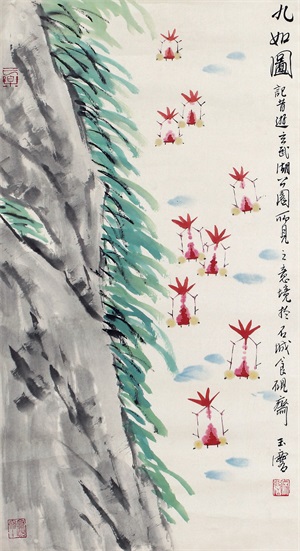 九如圖
記昔遊玄武湖公園所見之意境於石城食硯齋
玉濤